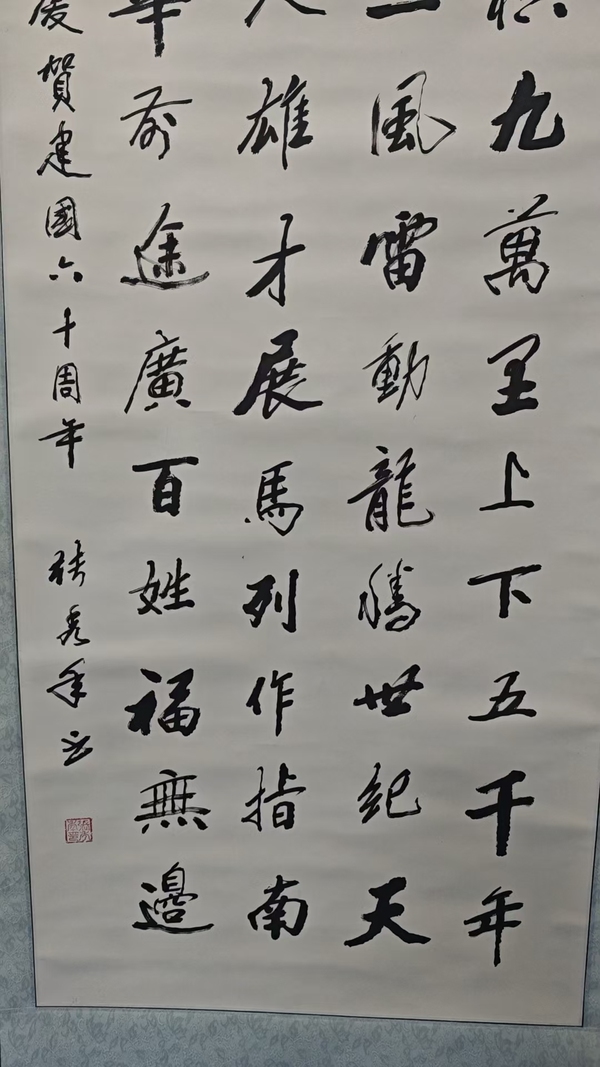 九萬里上下五千年
風雷動龍騰世紀天
雄才展馬列作指南
華前途廣百姓福無邊
慶賀建國六十周年 張秀